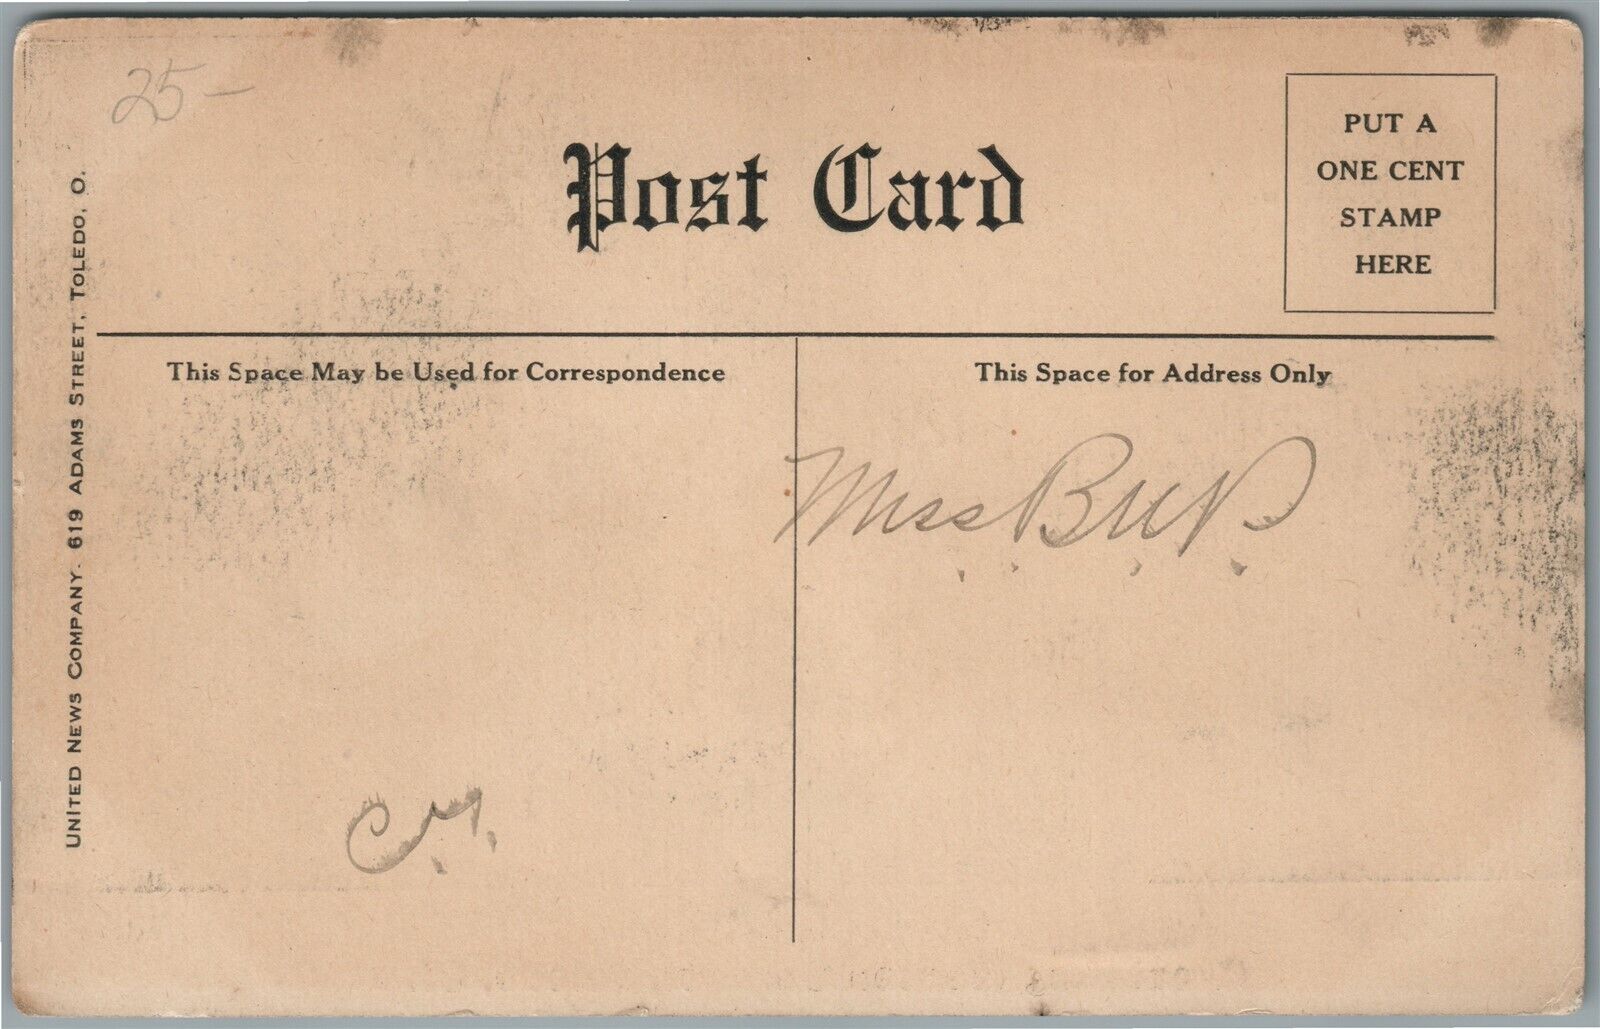 25-
Post Card
PUT A
ONE CENT
STAMP
HERE
UNITED NEWS COMPANY. 619 ADAMS STREET, TOLEDO, O.
This Space May be Used for Correspondence
This Space for Address Only
Miss B.U.P.
C.M.